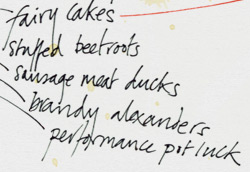 fairy cakes
stuffed beetroots
sausage meat ducks
brandy alexanders
performance pot luck